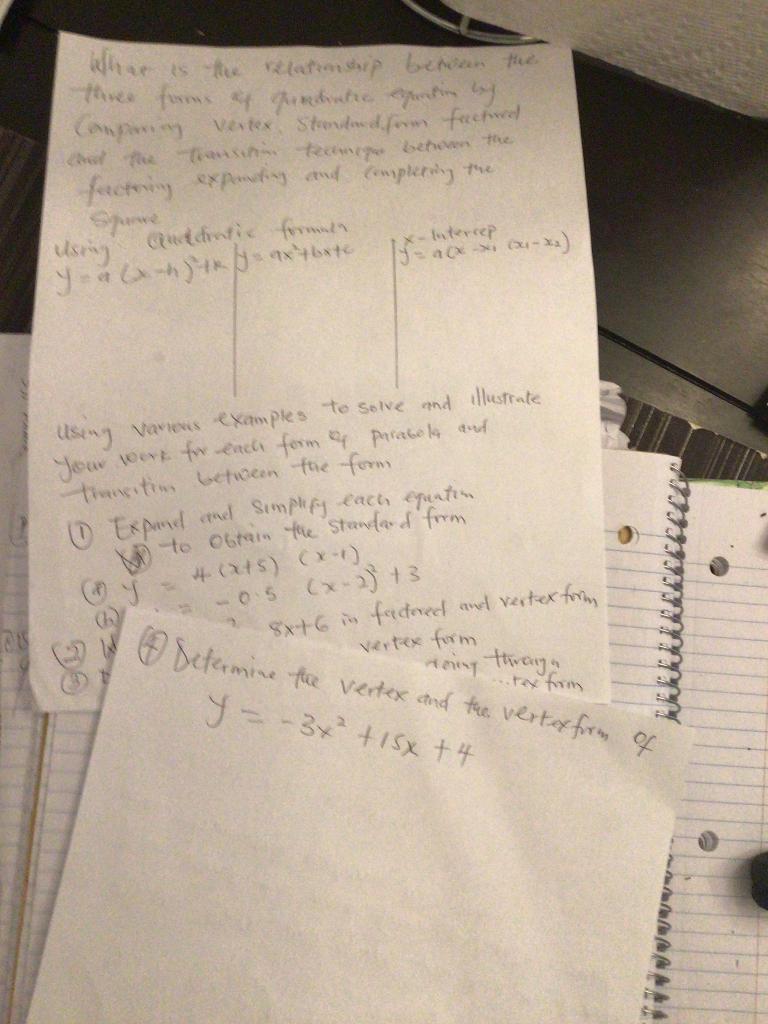 What is the relationship between the
three forms of quadratic equation by
Comparing vertex, Standard form factored
and the transition technique between the
factoring expanding and completing the
Square
Using Quadratic formula
y = a(x-h)²+k
y = ax²+bx+c
x-Intercep
y = a(x-x1 (x1-x2)
Using various examples to solve and illustrate
your work for each form of parabola and
transition between the form
① Expand and simplify each equation
to obtain the standard form
(a) y = 4(x+5) (x-1)
(b) = -0.5 (x-2)² +3
② 8x+6 in factored and vertex form
③ vertex form
going through
tex form
④ Determine the vertex and the vertex form of
y = -3x² +15x +4